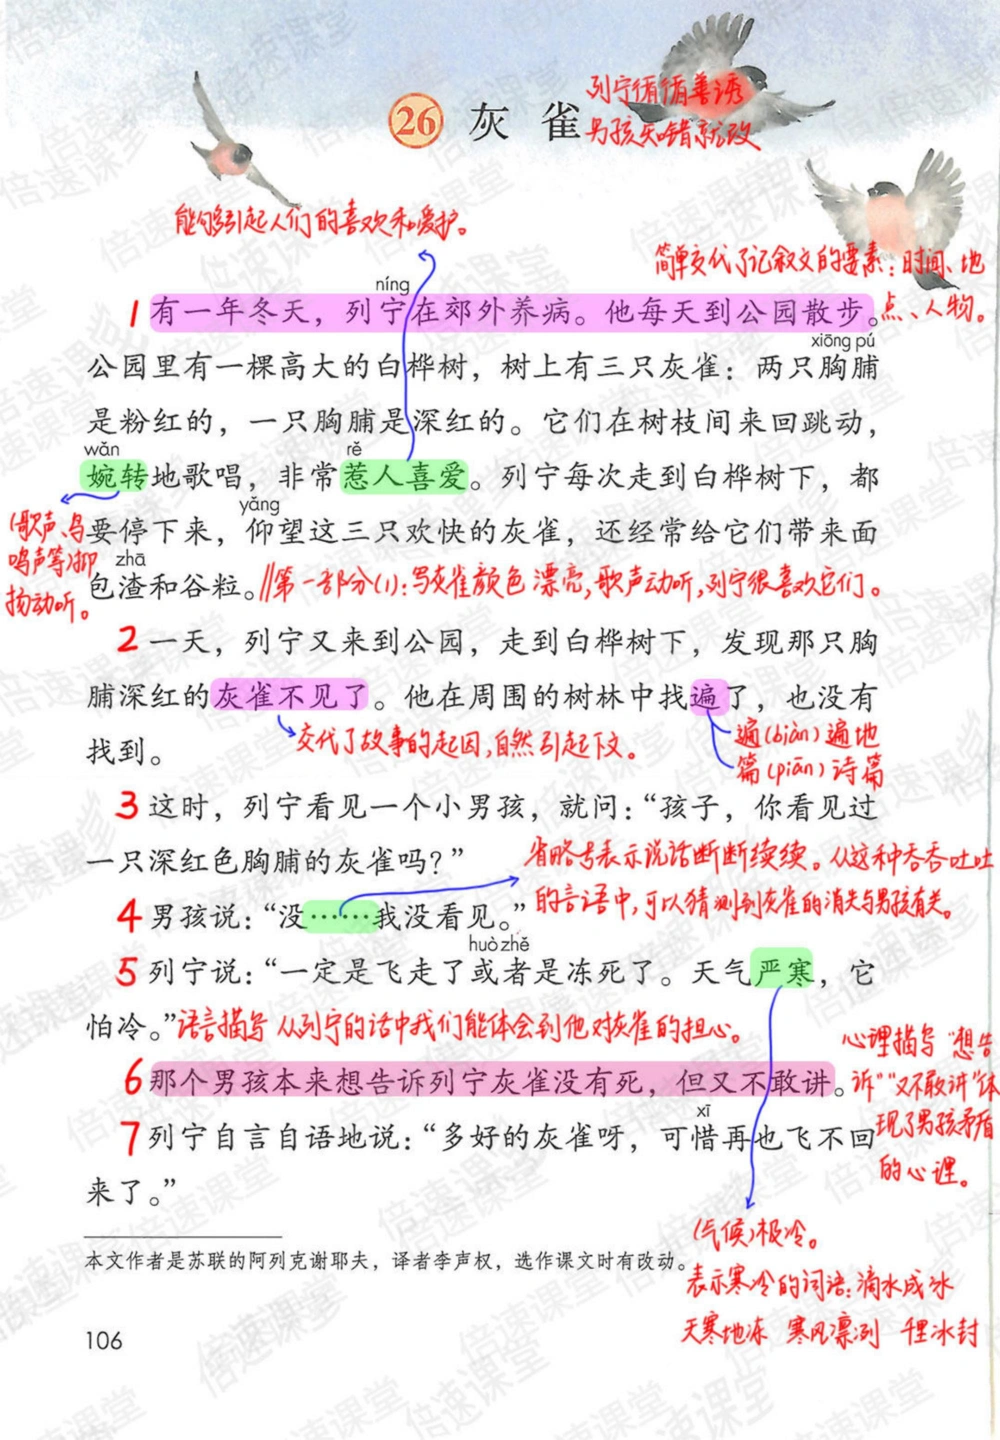 26 灰雀
列宁循循善诱
男孩知错就改
能够引起人们的喜欢和爱护。
简单交代了记叙文的要素:时间、地
点、人物。
níng
1 有一年冬天，列宁在郊外养病。他每天到公园散步。
xiōng pú
公园里有一棵高大的白桦树，树上有三只灰雀：两只胸脯
是粉红的，一只胸脯是深红的。它们在树枝间来回跳动，
wǎn rě
婉转地歌唱，非常惹人喜爱。列宁每次走到白桦树下，都
yǎng
要停下来，仰望这三只欢快的灰雀，还经常给它们带来面
zhā
包渣和谷粒。
(歌声、鸟
鸣声等)抑
扬动听。
//第一部分(1):写灰雀颜色漂亮,歌声动听,列宁很喜欢它们。
2 一天，列宁又来到公园，走到白桦树下，发现那只胸
脯深红的灰雀不见了。他在周围的树林中找遍了，也没有
找到。
交代了故事的起因,自然引起下文。
遍(biàn)遍地
篇(piān)诗篇
3 这时，列宁看见一个小男孩，就问：“孩子，你看见过
一只深红色胸脯的灰雀吗？”
省略号表示说话断断续续。从这种吞吞吐吐
的言语中,可以猜测到灰雀的消失与男孩有关。
4 男孩说：“没……我没看见。”
huò zhě
5 列宁说：“一定是飞走了或者是冻死了。天气严寒，它
怕冷。”
语言描写 从列宁的话中我们能体会到他对灰雀的担心。
6 那个男孩本来想告诉列宁灰雀没有死，但又不敢讲。
心理描写 “想告
诉”“又不敢讲”体
现了男孩矛盾
的心理。
xī
7 列宁自言自语地说：“多好的灰雀呀，可惜再也飞不回
来了。”
(气候)极冷。
表示寒冷的词语:滴水成冰
天寒地冻 寒风凛冽 千里冰封
本文作者是苏联的阿列克谢耶夫，译者李声权，选作课文时有改动。
106
倍速课堂